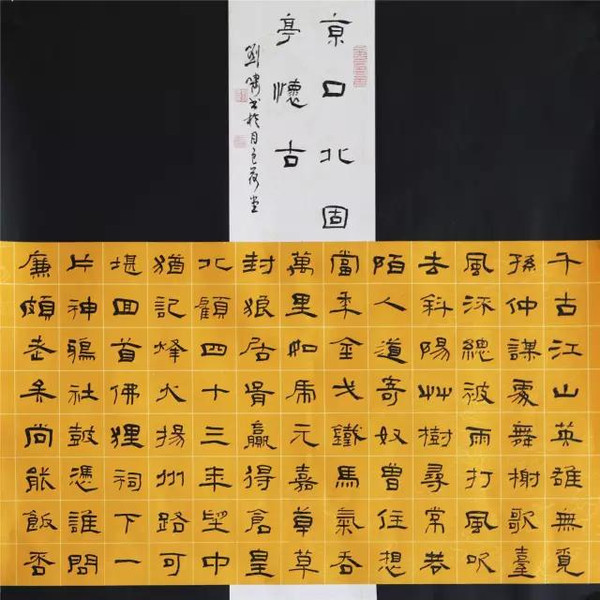 京口北固
亭懷古
千古江山英雄無覓
孫仲謀處舞榭歌臺
風流總被雨打風吹
去斜陽艸樹尋常巷
陌人道寄奴曾住想
當年金戈鐵馬氣吞
萬里如虎元嘉草草
封狼居胥贏得倉皇
北顧四十三年望中
猶記烽火揚州路可
堪回首佛狸祠下一
片神鴉社鼓憑誰問
廉頗老矣尚能飯否
劉書於月色荷堂